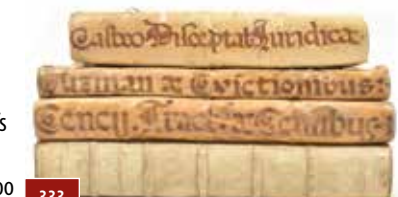 Castro Disceptat Juridicæ
Guzman æ Evictionibus:
Cencij. Tract: æ Censibus:
's
00
333